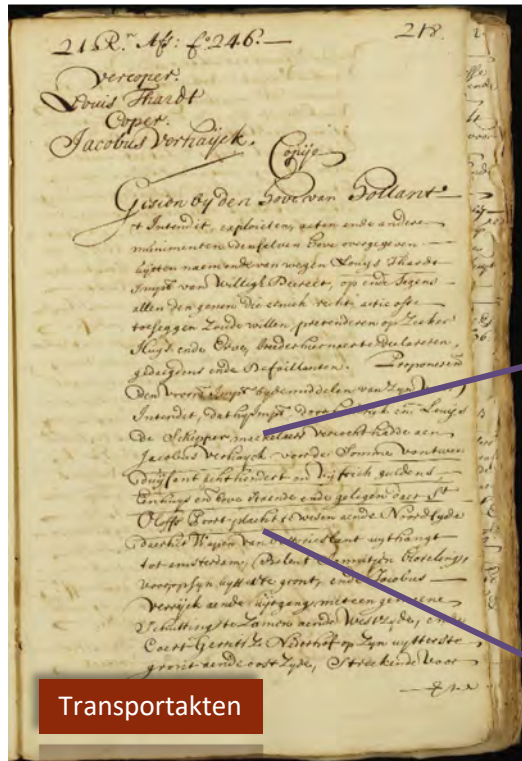 21 R.n Aff: f.o 246.—
218.
Vercoper.
Louis Thardt
Coper.
Jacobus Verhaijck.
Copije
Gesien by den Hove van Hollant
t Intendit, exploicten, acten ende andere
munimenten den selven hove overgegeven
bijtten naem ende van wegen Louijs Thardt
Impt van Willigh Decreet, op ende Jegens
allen den genen die eenich recht, actie ofte
toeseggen Zoude willen pretenderen op Zeeker
Huijs ende Erve, breeder hiernaer te declareren,
gedaeghdens ende Defaillanten. Proponerende
den voorn. Impt by de middelen van Zijn voorn.
Intendit, dat hij Impt door Louijs
de Schipper, maekelaers verocht hadde aen
Jacobus Verhayck voor de Somme van twee
duijsent achthondert en vijftich guldens,
Een huijs en Erve staende ende gelegen daer St
Oloffs Poort placht te wesen aende Noordtzyde
daer het Wapen van Oostvrieslant uythangt
tot Amsterdam, Belent
voorop Syn uytterste gront, ende Jacobus
Verrijck aende uijtgang, met een gemeene
Schutting te Zamen aende Westzyde, en
Coert Gerritsz Niderhof op Zyn uytterste
gront aende oost Zyde, Streckende Voor
Transportakten